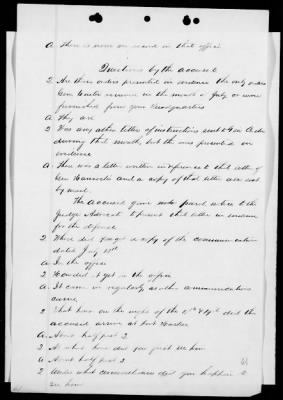 A. There is none on record in that office
Questions by the accused
Q Are these orders presented in evidence the only orders
Gen. Custer received in the month of July or were
furnished from your Headquarters
A They are
Q Was any other letter of instructions sent to Gen Custer
during that month, but the ones presented in
evidence
A. There was a letter written in reference to that letter of
Gen Hancock's and a copy of that letter was sent
by mail.
The accused gave notice to the
Judge Advocate to present that letter in evidence
for the defence
Q Where did you get a copy of the communication
dated July 13th
A In the office
Q How did it get in the office
A It came in regularly as other communications
came,
Q What hour on the night of the did the
accused arrive at Fort Harker
A. About half past 2
Q At what hour did you first see him
A About half past 2
Q Under what circumstances did you happen to
see him